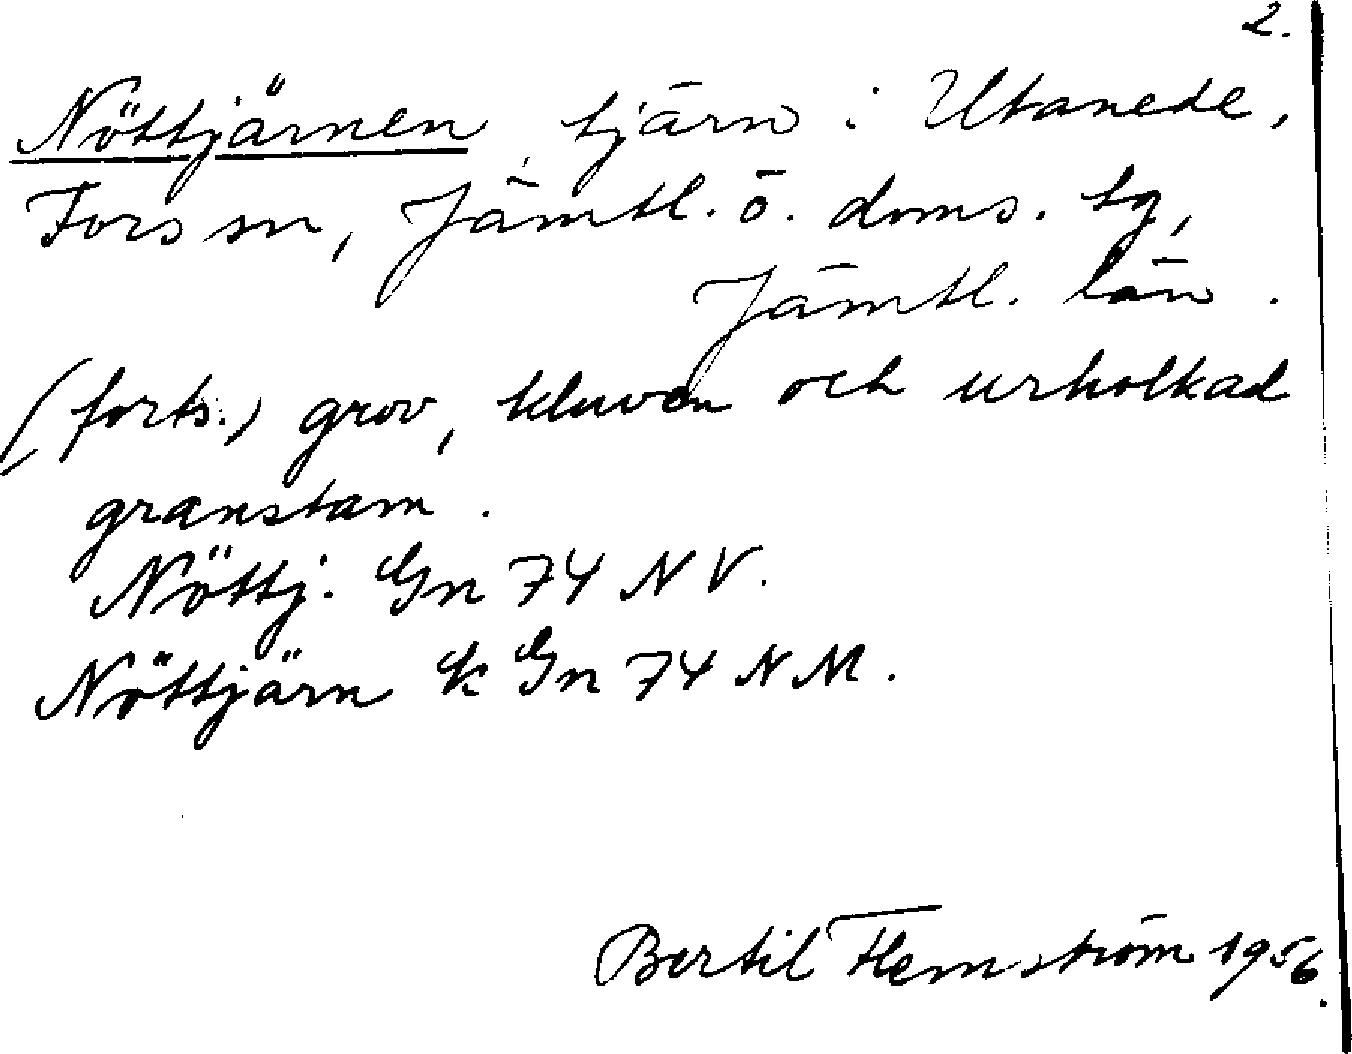 2.
Nöttjärnen tjärn i Utanede,
Fors sn, Jämtl. ö. doms. tg,
Jämtl. län.
(forts.) grov, kluven och urholkad
granstam.
Nöttj. Gn 74 N V.
Nöttjärn Gn 74 N M.
Bertil Flemström 1956.